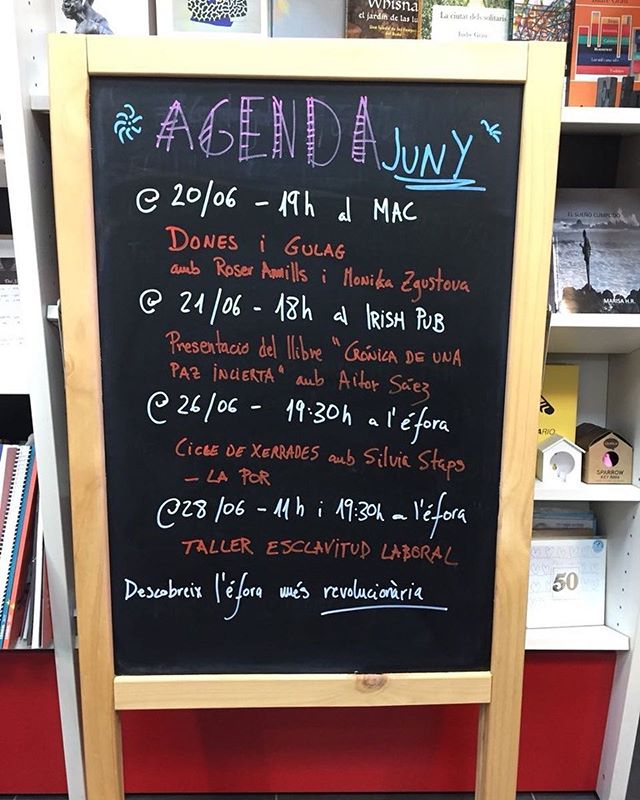 Whisna
el jardín de las lu
La ciutat dels solitaris
Tudor Grau
AGENDA JUNY
@ 20/06 - 19h al MAC
DONES i GULAG
amb Roser Amills i Monika Zgustova
@ 21/06 - 18h al IRISH PUB
Presentació del llibre "CRÓNICA DE UNA
PAZ INCIERTA" amb Aitor Sáez
@ 26/06 - 19:30h a l'éfora
CICLE DE XERRADES amb Silvia Staps
- LA POR
@ 28/06 - 11h i 19:30h a l'éfora
TALLER ESCLAVITUD LABORAL
Descobreix l'éfora més revolucionària
EL SUEÑO CUMPLIDO
MARISA H.R.
ARIO
SPARROW
KEY RING
50